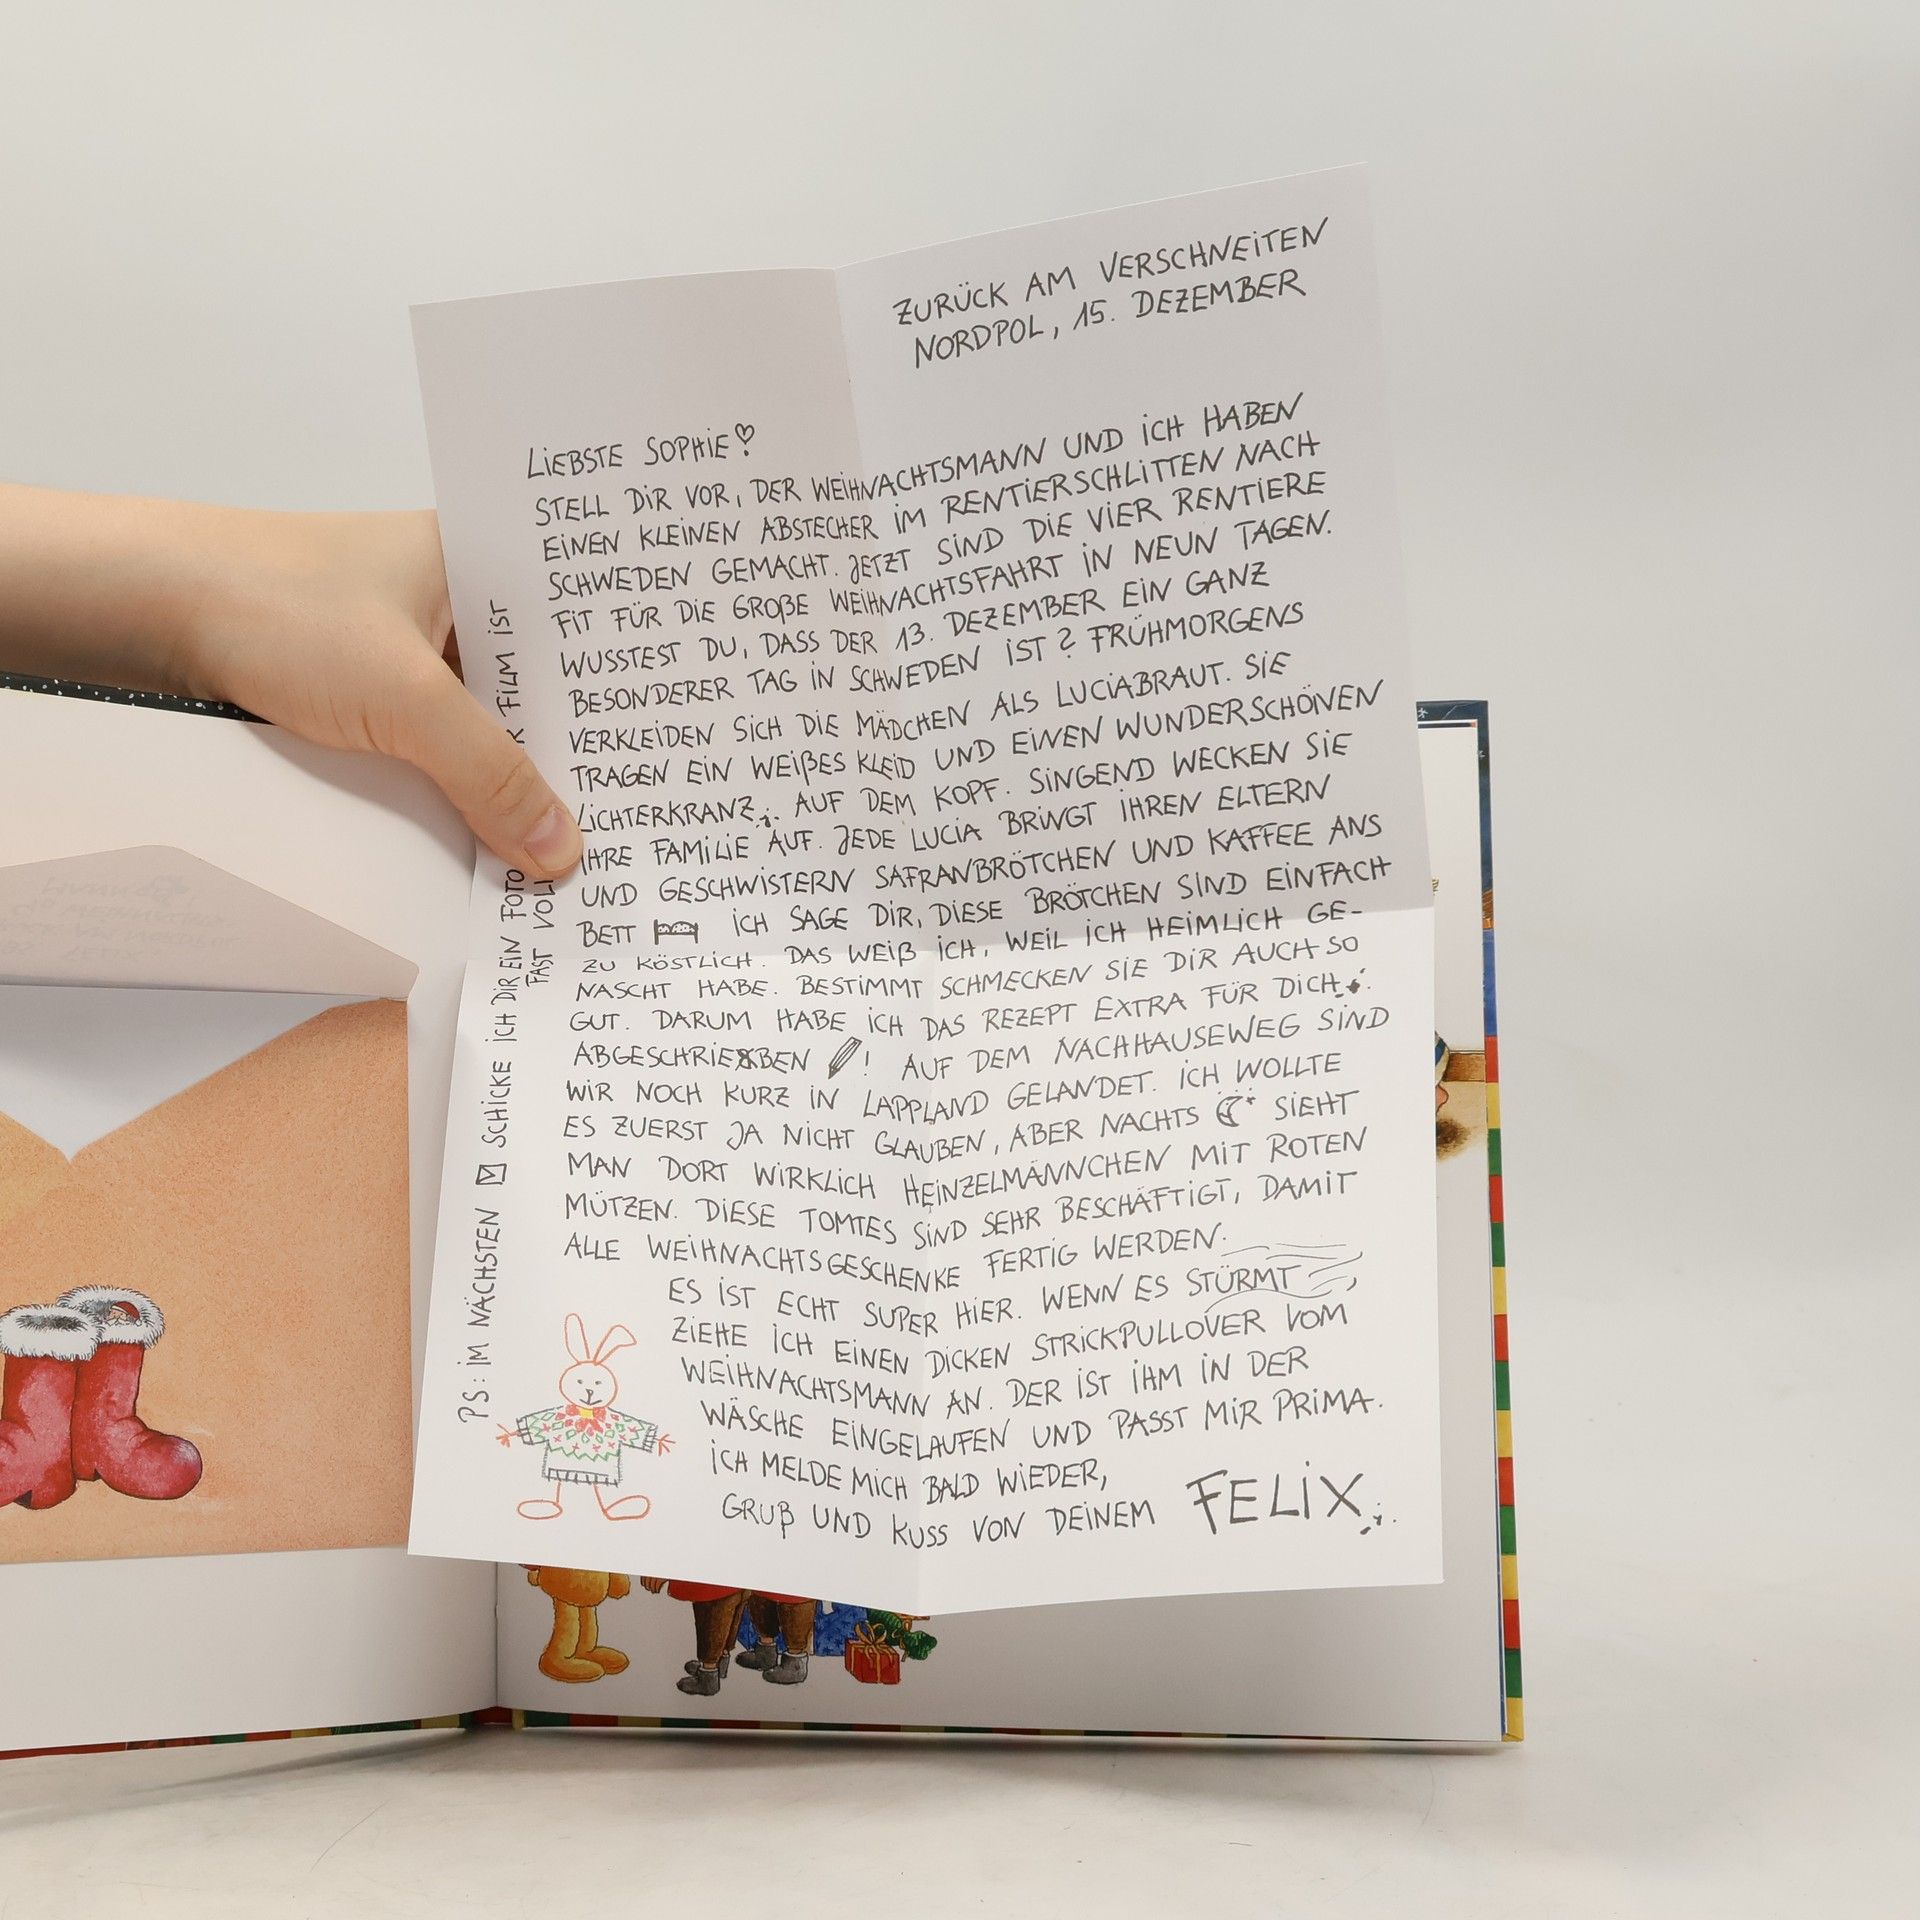 ZURÜCK AM VERSCHNEITEN
NORDPOL, 15. DEZEMBER
LIEBSTE SOPHIE!
STELL DIR VOR, DER WEIHNACHTSMANN UND ICH HABEN
EINEN KLEINEN ABSTECHER IM RENTIERSCHLITTEN NACH
SCHWEDEN GEMACHT. JETZT SIND DIE VIER RENTIERE
FIT FÜR DIE GROßE WEIHNACHTSFAHRT IN NEUN TAGEN.
WUSSTEST DU, DASS DER 13. DEZEMBER EIN GANZ
BESONDERER TAG IN SCHWEDEN IST? FRÜHMORGENS
VERKLEIDEN SICH DIE MÄDCHEN ALS LUCIABRAUT. SIE
TRAGEN EIN WEIßES KLEID UND EINEN WUNDERSCHÖNEN
LICHTERKRANZ AUF DEM KOPF. SINGEND WECKEN SIE
IHRE FAMILIE AUF. JEDE LUCIA BRINGT IHREN ELTERN
UND GESCHWISTERN SAFRANBRÖTCHEN UND KAFFEE ANS
BETT ICH SAGE DIR, DIESE BRÖTCHEN SIND EINFACH
ZU KÖSTLICH. DAS WEIß ICH, WEIL ICH HEIMLICH GE-
NASCHT HABE. BESTIMMT SCHMECKEN SIE DIR AUCH SO
GUT. DARUM HABE ICH DAS REZEPT EXTRA FÜR DICH
ABGESCHRIEBEN! AUF DEM NACHHAUSEWEG SIND
WIR NOCH KURZ IN LAPPLAND GELANDET. ICH WOLLTE
ES ZUERST JA NICHT GLAUBEN, ABER NACHTS SIEHT
MAN DORT WIRKLICH HEINZELMÄNNCHEN MIT ROTEN
MÜTZEN. DIESE TOMTES SIND SEHR BESCHÄFTIGT, DAMIT
ALLE WEIHNACHTSGESCHENKE FERTIG WERDEN.
ES IST ECHT SUPER HIER. WENN ES STÜRMT,
ZIEHE ICH EINEN DICKEN STRICKPULLOVER VOM
WEIHNACHTSMANN AN. DER IST IHM IN DER
WÄSCHE EINGELAUFEN UND PASST MIR PRIMA.
ICH MELDE MICH BALD WIEDER,
GRUß UND KUSS VON DEINEM FELIX
PS: IM NÄCHSTEN SCHICKE ICH DIR EIN FOTO FILM IST
FAST